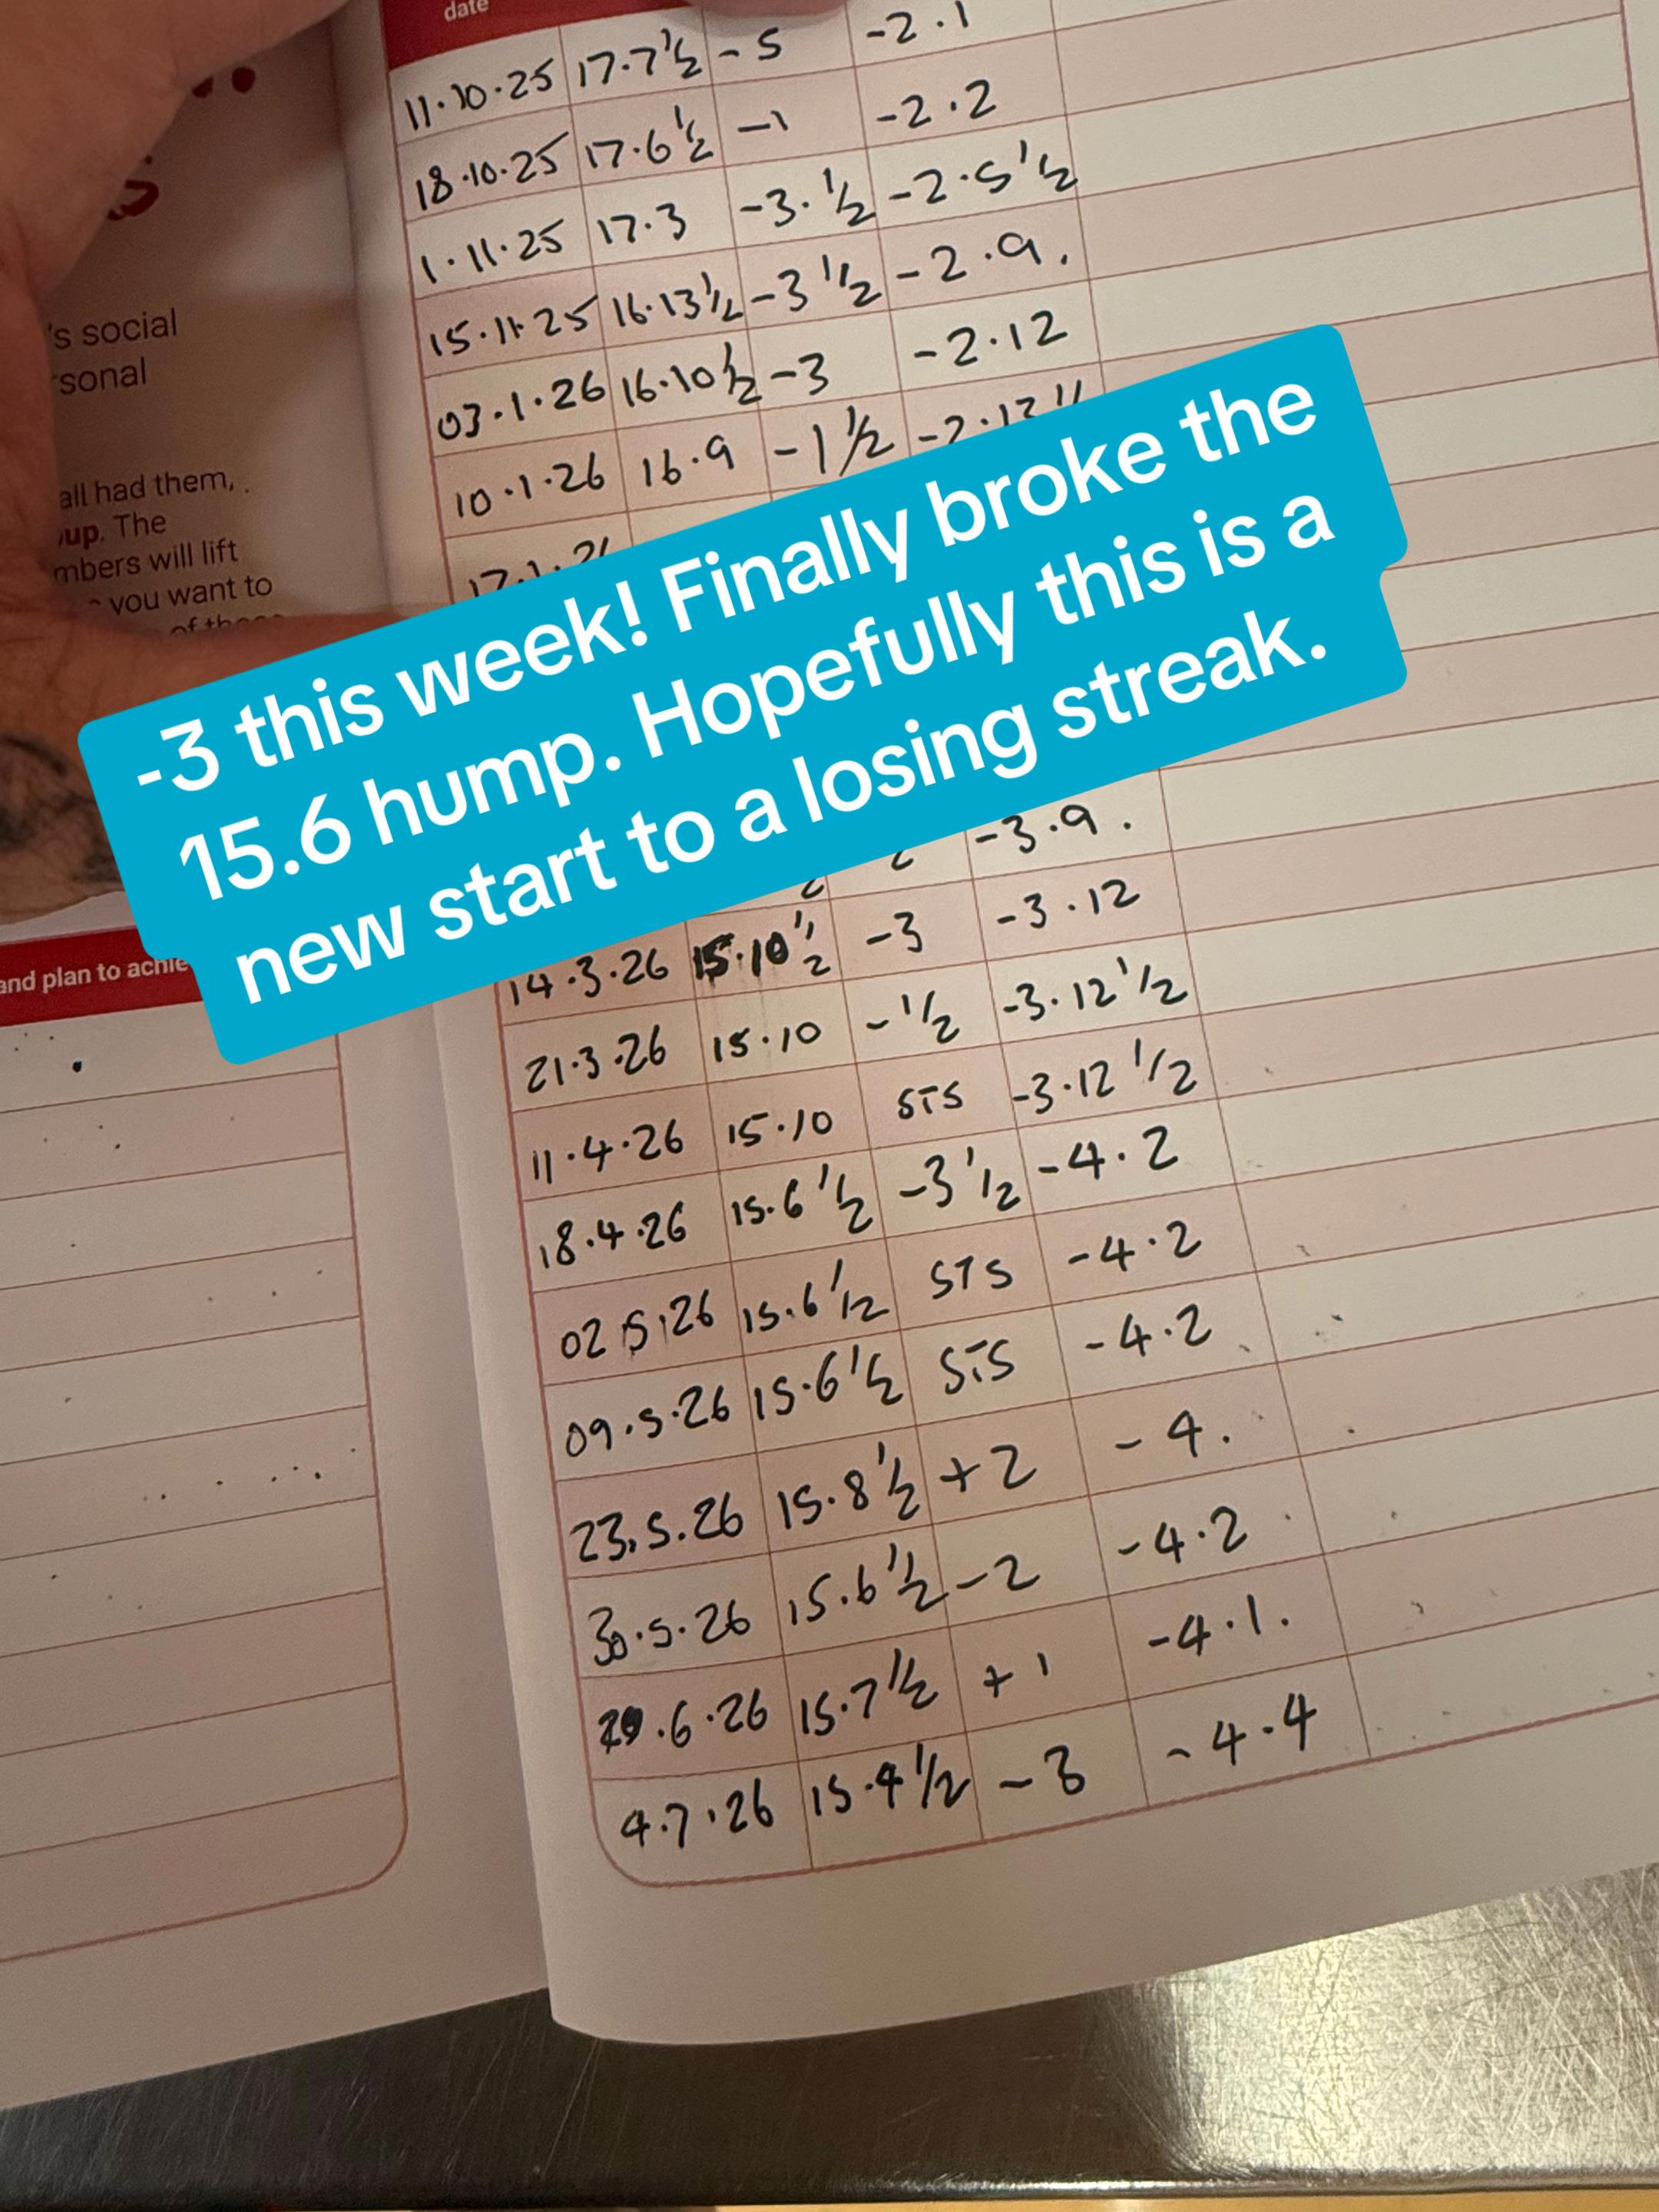 date
11.10.25 17.7½ -5 -2.1
18.10.25 17.6½ -1 -2.2
1.11.25 17.3 -3.½ -2.5½
15.11.25 16.13½ -3½ -2.9.
03.1.26 16.10½ -3 -2.12
10.1.26 16.9 -1½
's social
all had them,
up. The
will lift
you want to
-3 this week! Finally broke the
15.6 hump. Hopefully this is a
new start to a losing streak.
-3.9.
and plan to
14.3.26 15.10½ -3 -3.12
21.3.26 15.10 -½ -3.12½
11.4.26 15.10 STS -3.12½
18.4.26 15.6½ -3½ -4.2
02.5.26 15.6½ STS -4.2
09.5.26 15.6½ STS -4.2
23.5.26 15.8½ +2 -4.
30.5.26 15.6½ -2 -4.2
.6.26 15.7½ +1 -4.1.
4.7.26 15.4½ -3 -4.4